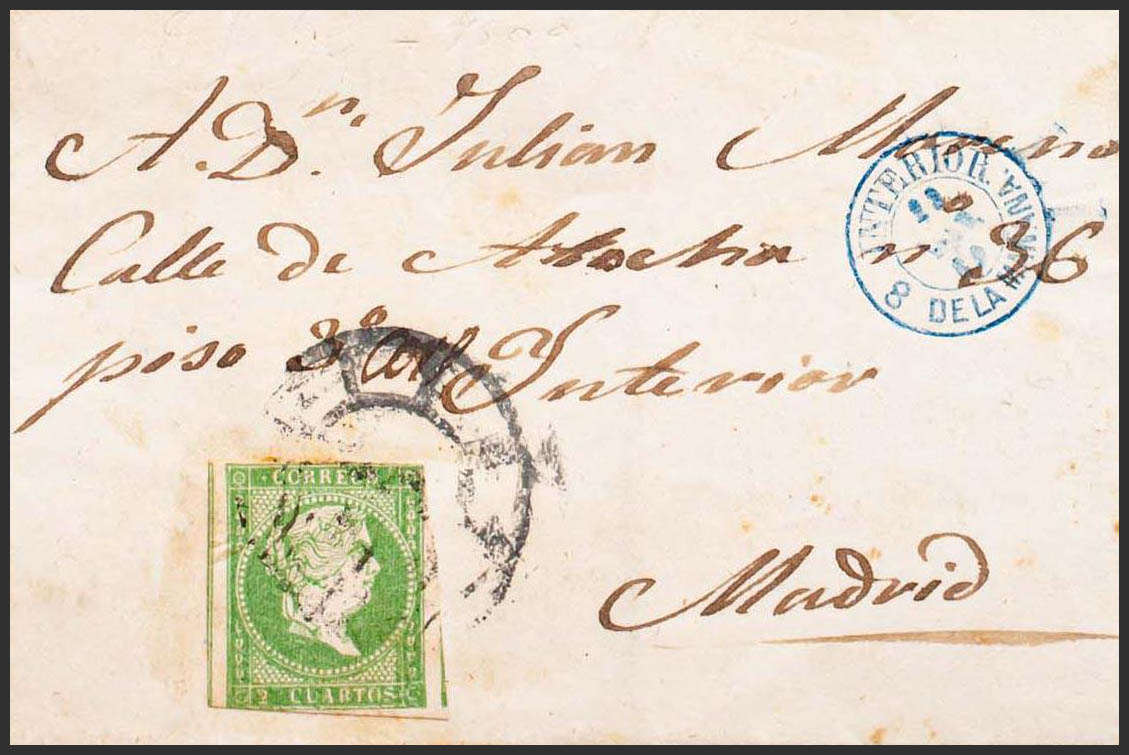 A. Dn. Julian Moreno
Calle de Atocha n.º 36
piso 3º Interior
Madrid
INTERIOR.
8 DE LA MAÑANA
CORREOS
2 CUARTOS